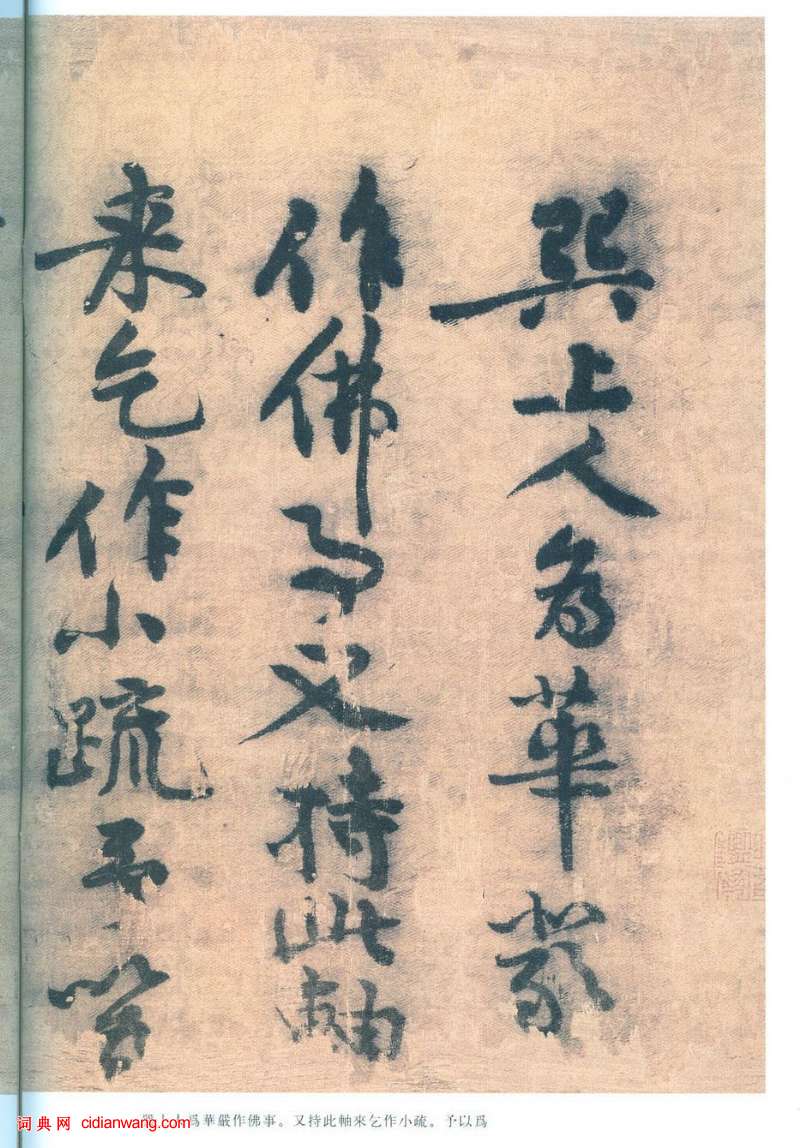 巽上人為華嚴
作佛事又持此軸
来乞作小疏予以為
巽上人爲華嚴作佛事。又持此軸來乞作小疏。予以爲
词典网 cidianwang.com